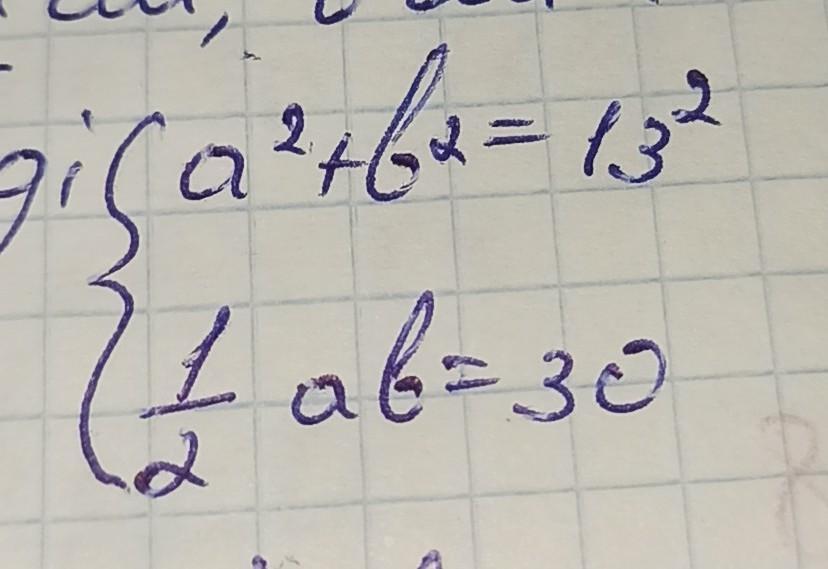 a² + b² = 13²
1/2 ab = 30